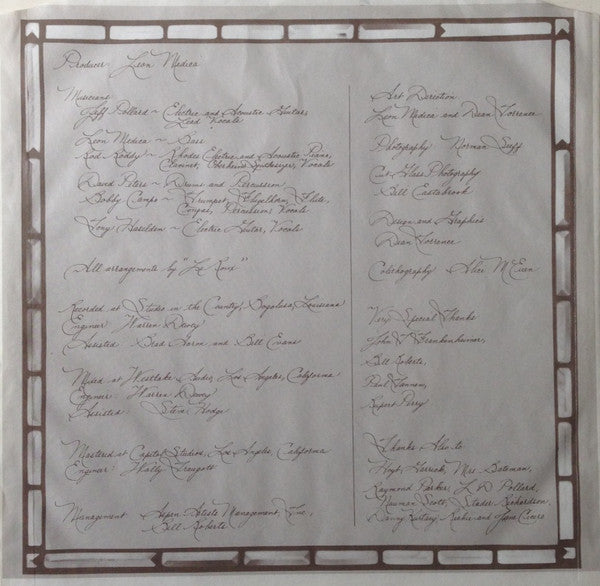 Producer: Leon Medica
Musicians:
Jeff Pollard ~ Electric and Acoustic Guitars,
Lead Vocals
Leon Medica ~ Bass
Rod Roddy ~ Rhodes Electric and Acoustic Piano,
Clavinet, Oberheim Synthesizer, Vocals
David Peters ~ Drums and Percussion
Bobby Campo ~ Trumpet, Flugelhorn, Flute,
Congas, Percussion, Vocals
Tony Haselden ~ Electric Guitar, Vocals
All arrangements by "Le Roux"
Recorded at Studio in the Country, Bogalusa, Louisiana
Engineer: Warren Dewey
Assisted: Brad and Bill Evans
Mixed at Westlake Audio, Los Angeles, California
Engineer: Warren Dewey
Assisted: Steve Hodge
Mastered at Capitol Studios, Los Angeles, California
Engineer: Wally Traugott
Management: Aspen Artists Management, Inc.,
Bill Roberts
Art Direction
Leon Medica and Dean Torrence
Photography Norman Seeff
Cut Glass Photography
Bill Eastabrook
Design and Graphics
Dean Torrence
Alice McEuen
Very Special Thanks
John T. Frankenheimer,
Bill Roberts,
Paul Tannen,
Rupert Perry
Thanks Also to
Hoyt, Garrick, Mrs. Bateman,
Raymond Parker, L. D. Pollard,
Norman Scott, Richardson,
Danny and Cicero